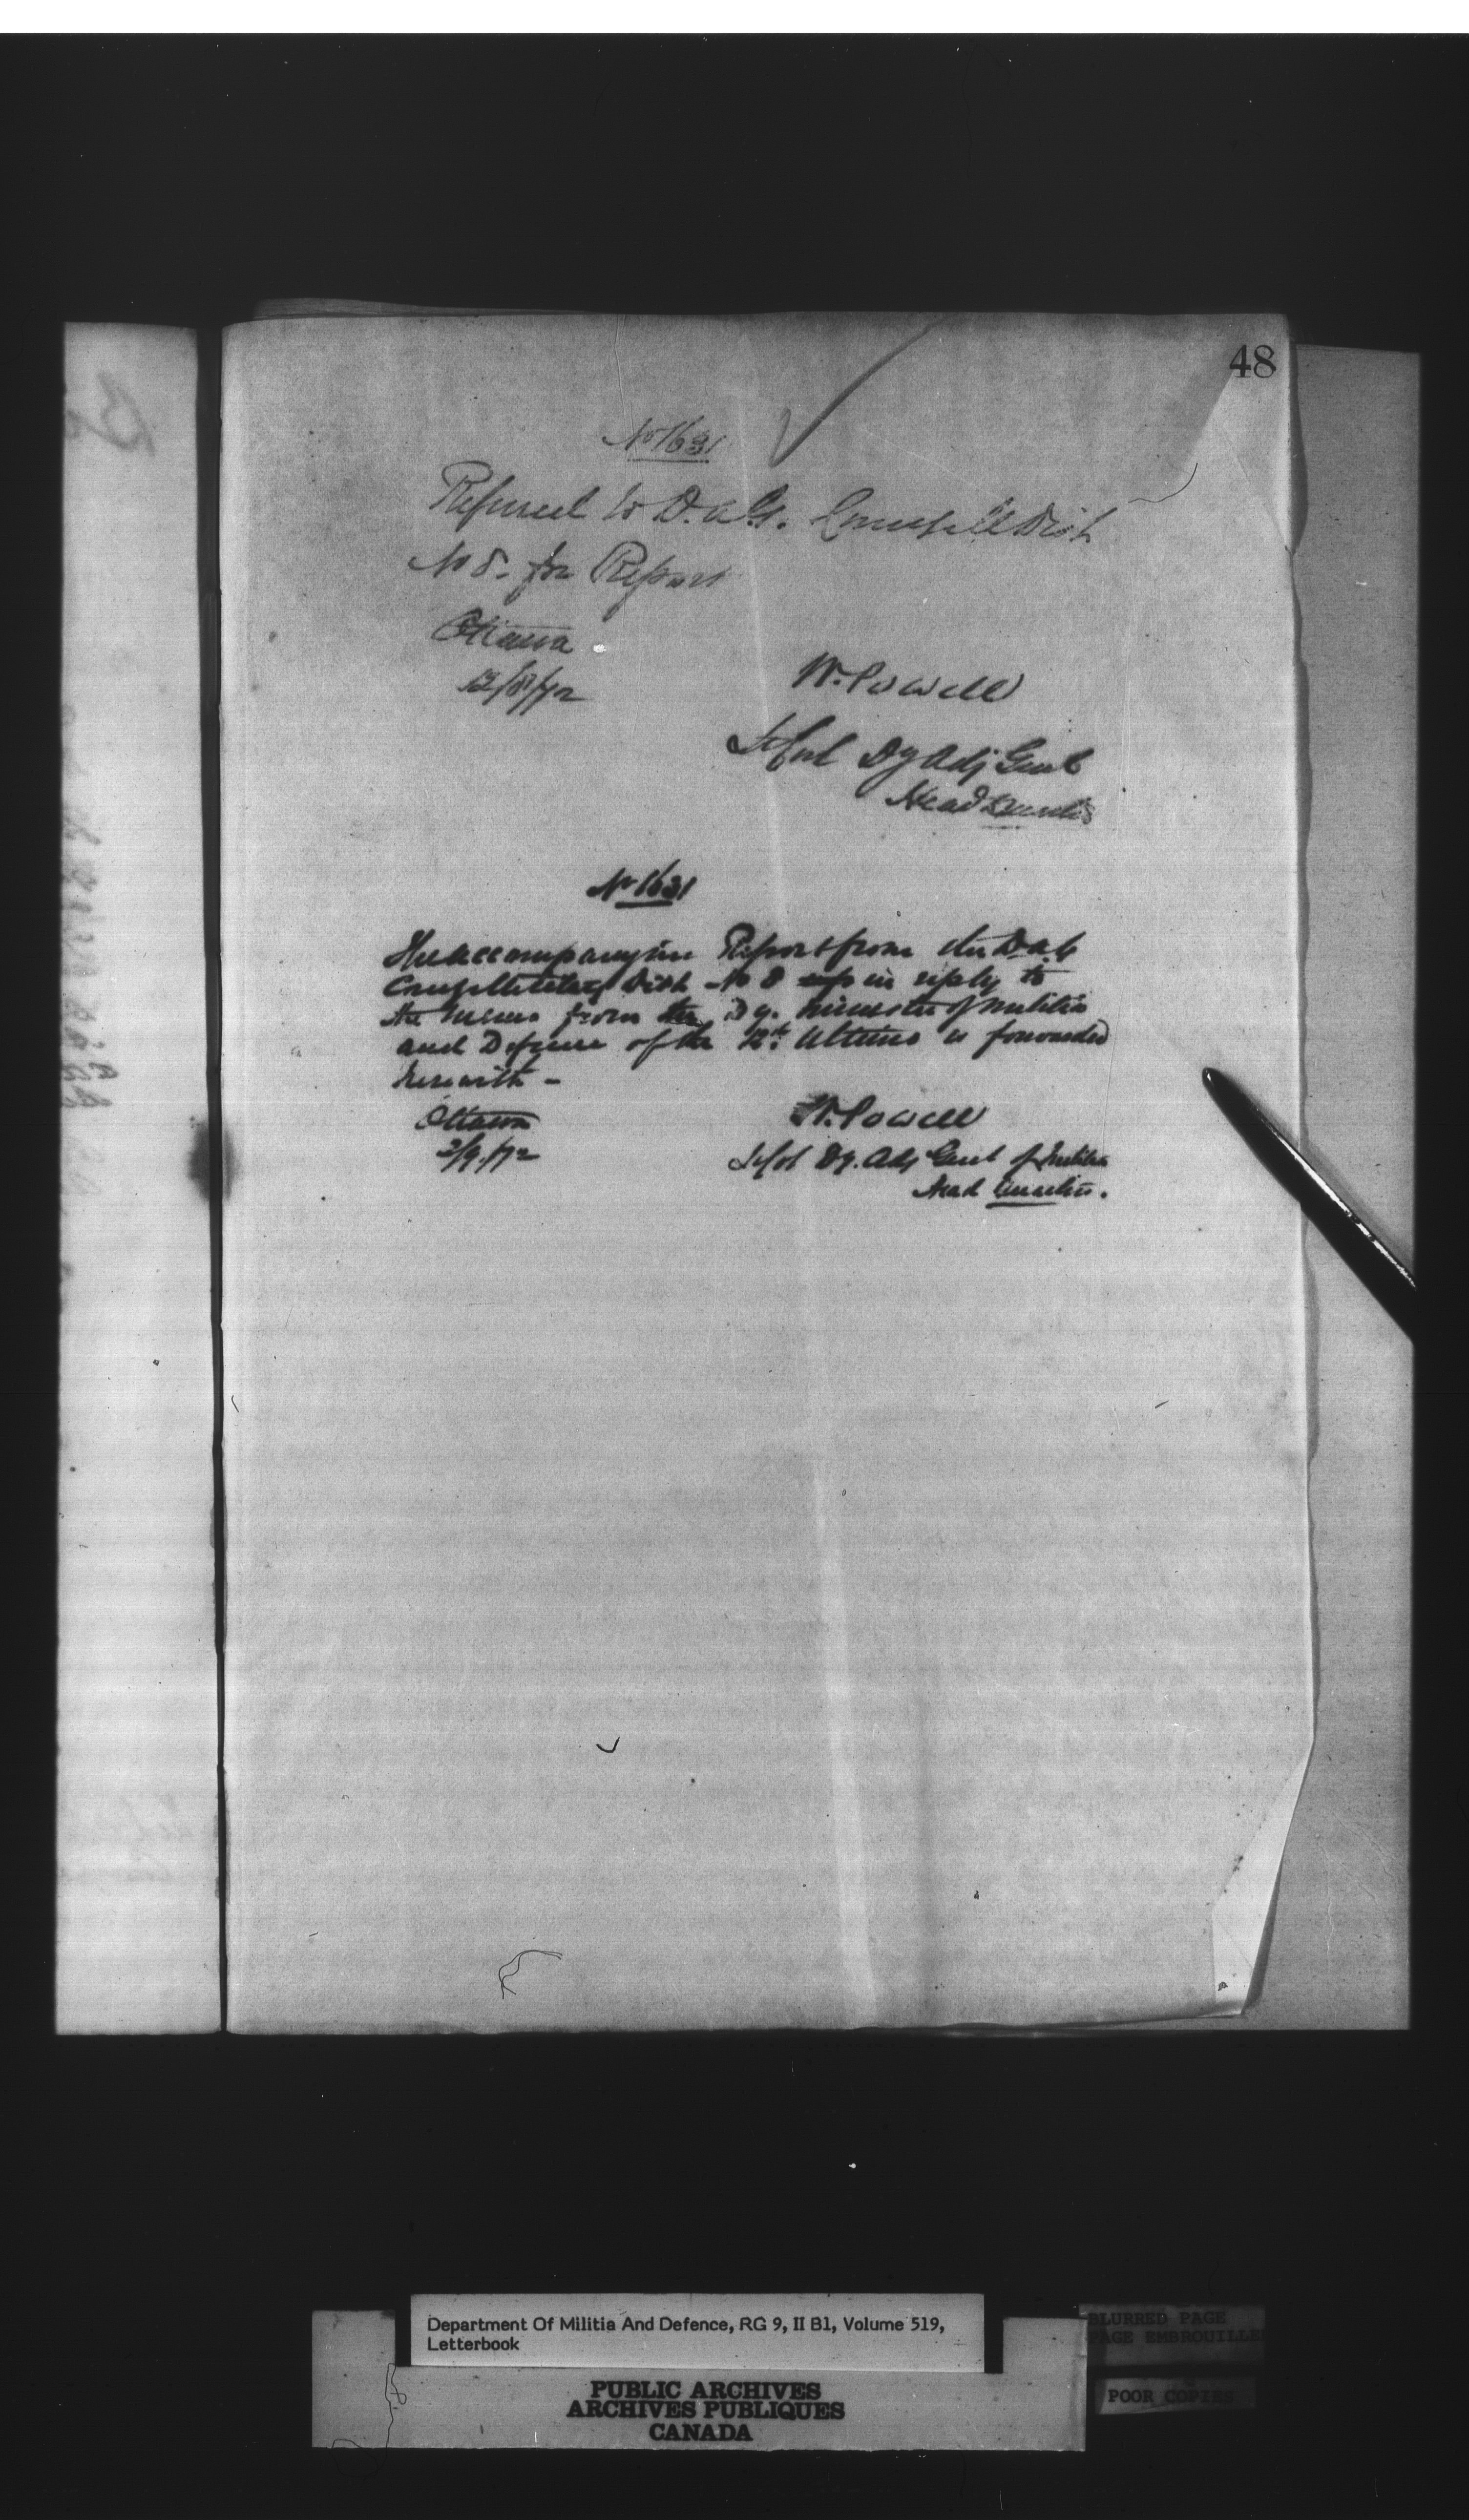 48
No 1631
Referred to D.A.G. Comdg Mil Dist
No 8. for Report
Ottawa
12/8/72
W. Powell
Lt Col Dy Adj Genl
Head Quarters
No 1631
The accompanying Report from the D.A.G
Dist No 8 in reply to
the memo from the Dy. Minister of Militia
and Defence of the 12th Ultimo is forwarded
herewith -
Ottawa
2/9/72
W. Powell
Lt Col Dy. Adj Genl of Militia
Head Quarters.
Department Of Militia And Defence, RG 9, II B1, Volume 519,
Letterbook
PUBLIC ARCHIVES
ARCHIVES PUBLIQUES
CANADA
BLURRED PAGE
PAGE EMBROUILLEE
POOR COPIES